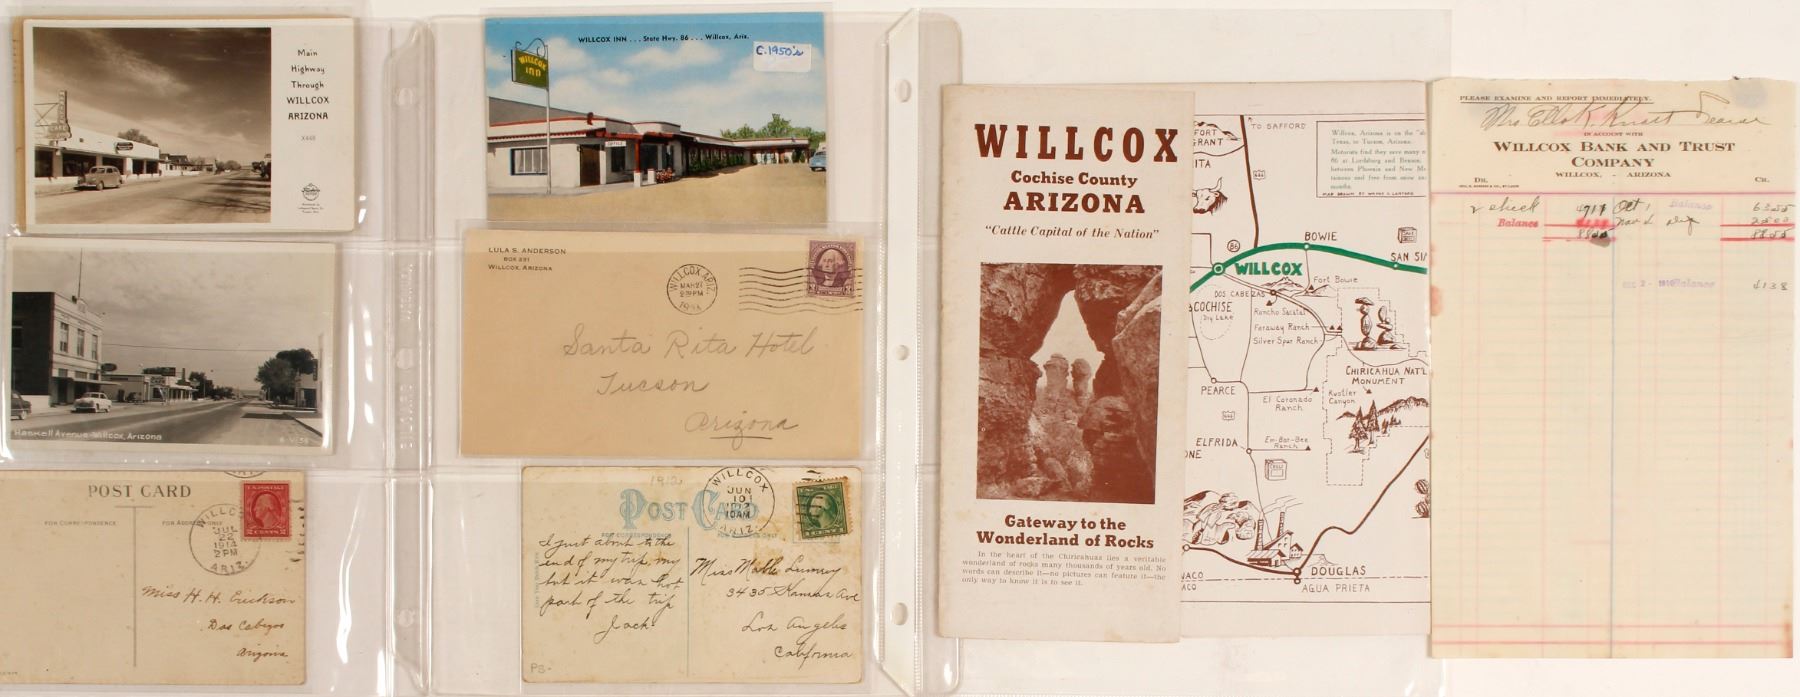 Main
Highway
Through
WILLCOX
ARIZONA
X448
CAFE
WILLCOX INN . . . State Hwy. 86 . . . Willcox, Ariz.
C. 1950's
WILLCOX
INN
OFFICE
Haskell Avenue - Willcox, Arizona
LULA S. ANDERSON
BOX 231
WILLCOX, ARIZONA
WILLCOX, ARIZ.
MAR 27
Santa Rita Hotel
Tucson
Arizona
POST CARD
FOR CORRESPONDENCE
FOR ADDRESS ONLY
WILLCOX
JUL
22
1914
2 PM
ARIZ.
2 CENTS 2
Miss H. H. Erickson
Dos Cabezos
Arizona
1912
POST CARD
FOR CORRESPONDENCE
FOR ADDRESS ONLY
WILLCOX
JUN
10
1912
10AM
ARIZ.
I just about to the
end of my trip, my
but it was hot
part of the trip
Jack
Miss Mable
3435 Kansas Ave
Los Angeles
California
PS-
WILLCOX
Cochise County
ARIZONA
"Cattle Capital of the Nation"
Gateway to the
Wonderland of Rocks
In the heart of the Chiricahuas lies a veritable
wonderland of rocks many thousands of years old. No
words can describe it—no pictures can feature it—the
only way to know it is to see it.
TO SAFFORD
FORT
GRANT
ITA
666
Willcox, Arizona is on the "sh
Texas, to Tucson, Arizona.
Motorists find they save many m
86 at Lordsburg and Benson,
between Phoenix and New Me
famous and free from snow an
months.
MAP DRAWN BY WAYNE S. LANFORD
86
BOWIE
SAN SI
WILLCOX
Fort Bowie
DOS CABEZAS
COCHISE
Dry Lake
Rancho Sacatal
Faraway Ranch
Silver Spur Ranch
CHIRICAHUA NAT'L
MONUMENT
PEARCE
Rustler
Canyon
El Coronado
Ranch
666
ELFRIDA
ONE
Em-Bar-Bee
Ranch
DOUGLAS
NACO
ACO
AGUA PRIETA
PLEASE EXAMINE AND REPORT IMMEDIATELY.
Mrs Ella K.
IN ACCOUNT WITH
WILLCOX BANK AND TRUST
COMPANY
WILLCOX, - ARIZONA
DR.
CR.
2 check
Oct 1 Balance 6355
Balance
Nov 2 dep 2500
8855 8855
Balance 4138